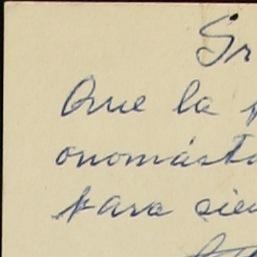 Sr
Que la
onomást
para sie